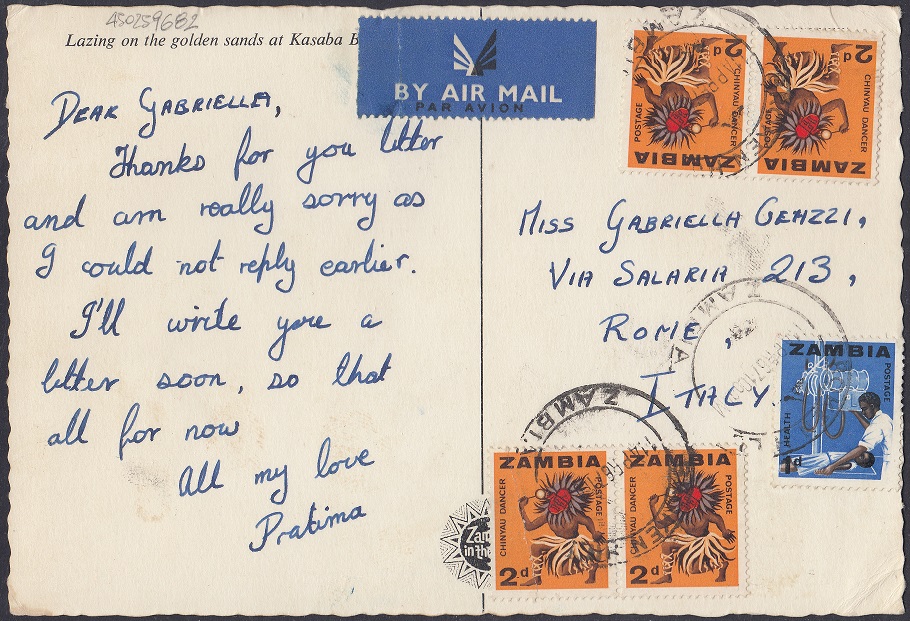 450259682
Lazing on the golden sands at Kasaba B
BY AIR MAIL
PAR AVION
DEAR GABRIELLA,
Thanks for you letter
and am really sorry as
I could not reply earlier.
I'll write you a
letter soon, so that
all for now
All my love
Pratima
2d
CHINYAU DANCER
POSTAGE
ZAMBIA
2d
CHINYAU DANCER
POSTAGE
ZAMBIA
MISS GABRIELLA GEAZZI,
VIA SALARIA 213,
ROME,
ITALY
ZAMBIA
POSTAGE
HEALTH
1d
ZAMBIA
CHINYAU DANCER
POSTAGE
2d
ZAMBIA
CHINYAU DANCER
POSTAGE
2d
ZAMBIA
ZAMBIA
Zam
in the